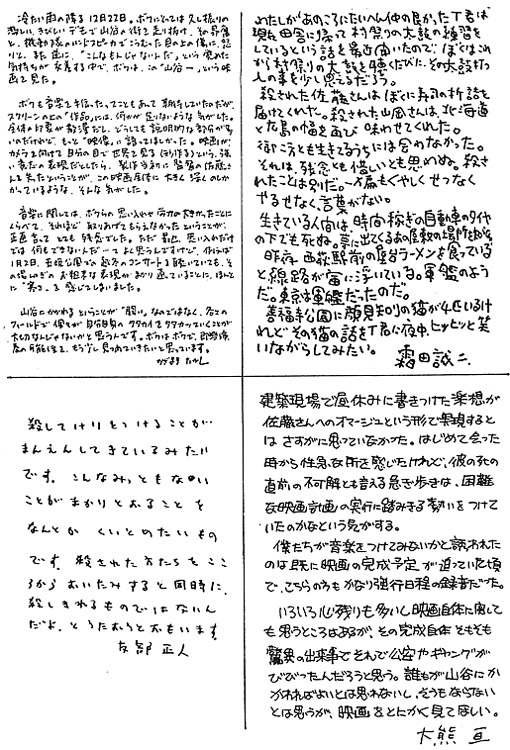 冷たい雨の降る12月22日。ボクにとっては久し振りの
激しい、きびしいデモで山谷の街を走り抜け、その昂奮
と、機動隊のハンドスピーカでこづかれた目の上の傷に、怒
り、また逆に、「こんなもんじゃないんだ」という覚めた
気持ちが交差する中で、ボクは、この「山谷ー」という映
画を見た。
ボクも音楽を手伝ったってこともあって期待していたのだが、
スクリーンの上の「作品」には、何かが足りないような気がした。
全体の印象が散漫だし、どうしても説明的な部分が多
いのだけれど、もっと「映像」に語ってほしかった。映画が、
カメラを向ける自分の目で世界を見るという、強
い意志の表現だとしたら、製作当初に監督の佐藤さ
んを失ったということが、この映画自体に大きく深くのしか
かっているような、そんな気がした。
音楽に関しては、ボクらの思い入れや労力の大きかったことに
くらべて、それほど取りあげてもらえなかったということが、
正直言って とても残念でした。ただ 思い入れだけ
では何もできないんだってよく思うんですけど、例えば
1月2日、玉姫公園での越冬のコンサートを聴いていても、そ
の場しのぎのお粗末な表現がまかり通っていることに、ほんと
に"寒さ"を感じてしまいました。
山谷にかかわるということが"闘い"なのではなく、各々の
フィールドで僕らが自分自身のタタカイをタタカっていくことが
大切なんじゃないかと思うんです。ボクはボクで、即興演
奏の可能性を、もう少し見つめていきたいと思っています。
かざまき たかし
わたしがあのころにたいへん仲の良かったT君は
現在田舎に帰って村祭りの太鼓の練習を
しているという話を最近聞いたので、ぼくはこれ
から村祭りの太鼓を聴くたびに、その太鼓打ち
人の事を少し思えるだろう。
殺された佐藤さんはぼくに寿司の折詰を
届けてくれた。殺された山岡さんは、北海道
と広島の幅を再び味わせてくれた。
御二人とも生きてるうちには会わなかった。
それは、残念とも惜いとも思わぬ。殺さ
れたことは別だ。くやしくせつなく
やるせなく、言葉がない。
生きている人間は、時間稼ぎの自動車のタイヤ
の下でも死ぬ。夢に出てくるあの屋敷の場所
昨夜、西荻駅前の屋台ラーメンを食っている
と線路が宙に浮いている。軍艦のよう
だ。東京は軍艦だったのだ。
善福寺公園に顔見知りの猫が4匹いるけ
れど その猫の話をT君に夜中、ヒッヒッと笑
いながらしてみたい。
霜田誠二
殺してけりをつけることが
まんえんしてきているみたい
です。こんなみっともない
ことがまかりとおることを
なんとか くいとめたいもの
です。殺された方たちをここ
ろからおいたみすると同時に、
殺しきれるものではないん
だよ、とうたおうとおもいます。
友部 正人
建築現場で昼休みに書きつけた楽想が
佐藤さんへのオマージュという形で実現すると
は さすがに思っていなかった。はじめて会った
時から性急な所を感じたけれど、彼の死の
直前の不可解とも言える急ぎ歩きは、困難
な映画計画の実行に踏みきる勢いをつけて
いたのかなという気がする。
僕たちが音楽をつけてみないかと誘われた
のは既に映画の完成予定が迫っていた頃
で、こちらの方もかなり強行日程の録音だった。
いろいろ心残りも多いし映画自体に関して
も思うところはあるが、その完成自体そもそも
驚異の出来事で それで公安やギャングが
びびったんだろうと思う。誰もが山谷にか
かわればよいとは思わないし、そうもならない
とは思うが、映画をとにかく見てほしい。
大熊 亘